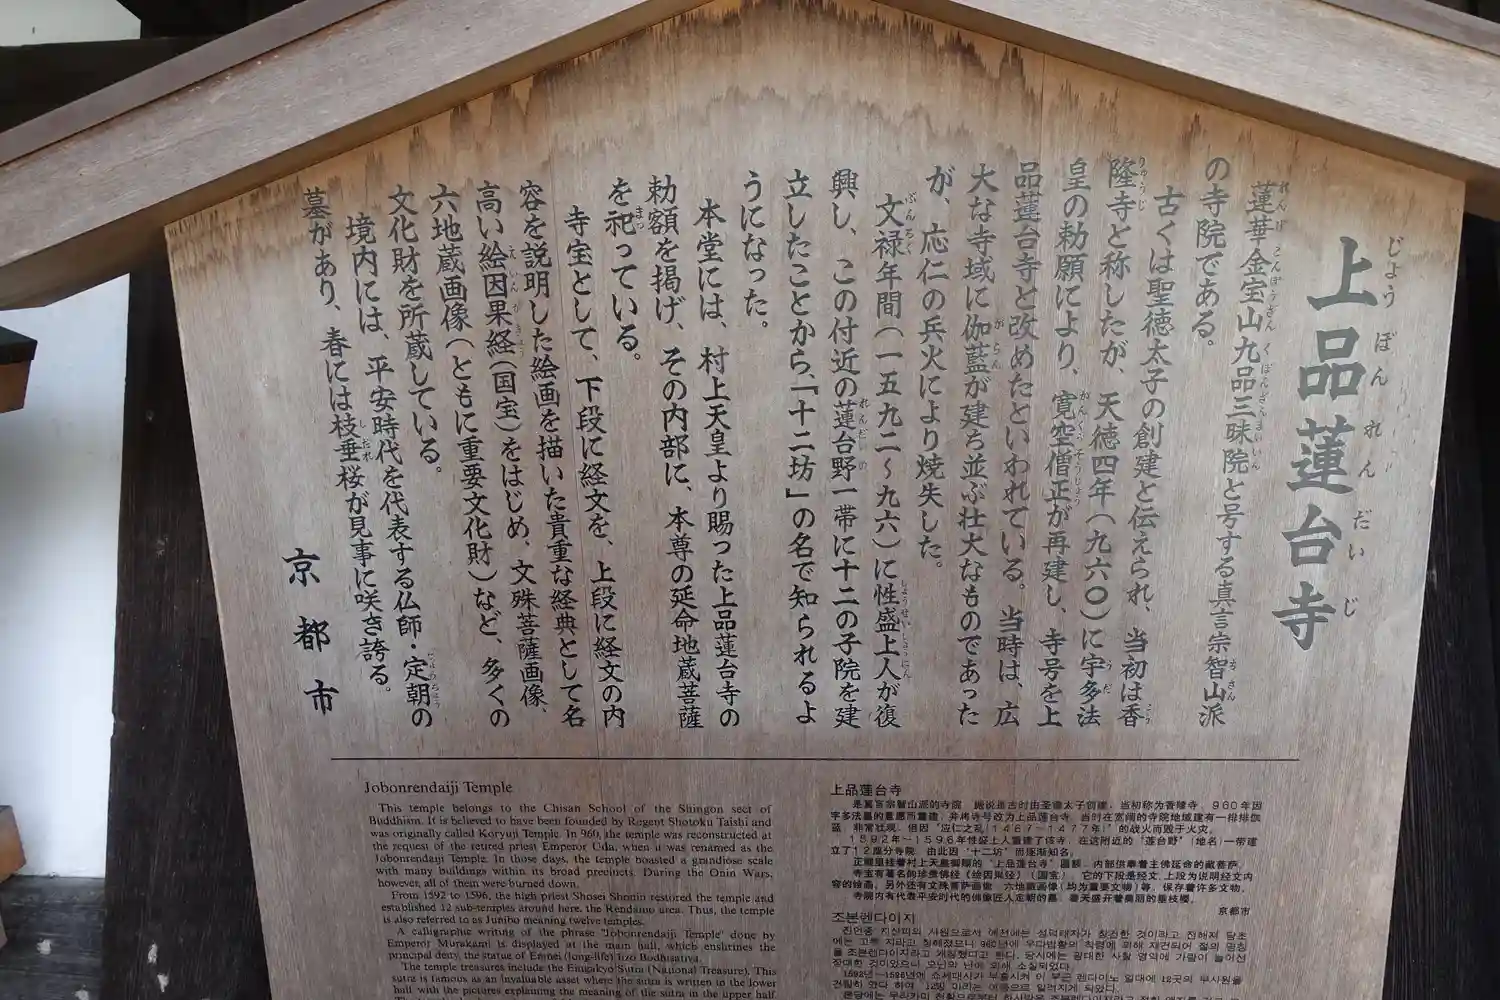 上品蓮台寺
じょうぼんれんだいじ
蓮華金宝山九品三昧院と号する真言宗智山派
の寺院である。
古くは聖徳太子の創建と伝えられ、当初は香
隆寺と称したが、天徳四年（九六〇）に宇多法
皇の勅願により、寛空僧正が再建し、寺号を上
品蓮台寺と改めたといわれている。当時は、広
大な寺域に伽藍が建ち並ぶ壮大なものであった
が、応仁の兵火により焼失した。
文禄年間（一五九二～九六）に性盛上人が復
興し、この付近の蓮台野一帯に十二の子院を建
立したことから、「十二坊」の名で知られるよ
うになった。
本堂には、村上天皇より賜った上品蓮台寺の
勅額を掲げ、その内部に、本尊の延命地蔵菩薩
を祀っている。
寺宝として、下段に経文を、上段に経文の内
容を説明した絵画を描いた貴重な経典として名
高い絵因果経（国宝）をはじめ、文殊菩薩画像、
六地蔵画像（ともに重要文化財）など、多くの
文化財を所蔵している。
境内には、平安時代を代表する仏師・定朝の
墓があり、春には枝垂桜が見事に咲き誇る。
京都市
Jobonrendaiji Temple
This temple belongs to the Chisan School of the Shingon sect of
Buddhism. It is believed to have been founded by Regent Shotoku Taishi and
was originally called Koryuji Temple. In 960, the temple was reconstructed at
the request of the retired priest Emperor Uda, when it was renamed as the
Jobonrendaiji Temple. In those days, the temple boasted a grandiose scale
with many buildings within its broad precincts. During the Onin Wars,
however, all of them were burned down.
From 1592 to 1596, the high priest Shosei Shonin restored the temple and
established 12 sub-temples around here, the Rendaino area. Thus, the temple
is also referred to as Junibo meaning twelve temples.
A calligraphic writing of the phrase "Jobonrendaiji Temple" done by
Emperor Murakami is displayed at the main hall, which enshrines the
principal deity, the statue of Enmei (long-life) Jizo Bodhisattva.
The temple treasures include the Eingakyo Sutra (National Treasure). This
sutra is famous as an invaluable asset where the sutra is written in the lower
half with the pictures explaining the meaning of the sutra in the upper half.
上品蓮台寺
是真言宗智山派的寺院。据说是古时由圣德太子创建，当初称为香隆寺，960年因
宇多法皇的意愿而重建，并将寺号改为上品莲台寺。当时在宽阔的寺院地域建有一排排伽
蓝，非常壮观，但因"应仁之乱(1467～1477年)"的战火而毁于火灾。
1592年～1596年性盛上人重建了该寺，在这附近的"莲台野"(地名)一带建
立了12座分寺院，由此因"十二坊"而逐渐知名。
正殿里挂着村上天皇御赐的"上品莲台寺"匾额，内部供奉着主佛延命的藏菩萨。
寺宝有著名的珍贵佛经《绘因果经》(国宝)，它的下段是经文、上段为说明经文内
容的绘画，另外还有文殊菩萨画像、六地藏画像(均为重要文物)等，保存着许多文物。
寺院内有代表平安时代的佛像匠人定朝的墓，春天盛开着美丽的垂枝樱。
京都市
조본렌다이지